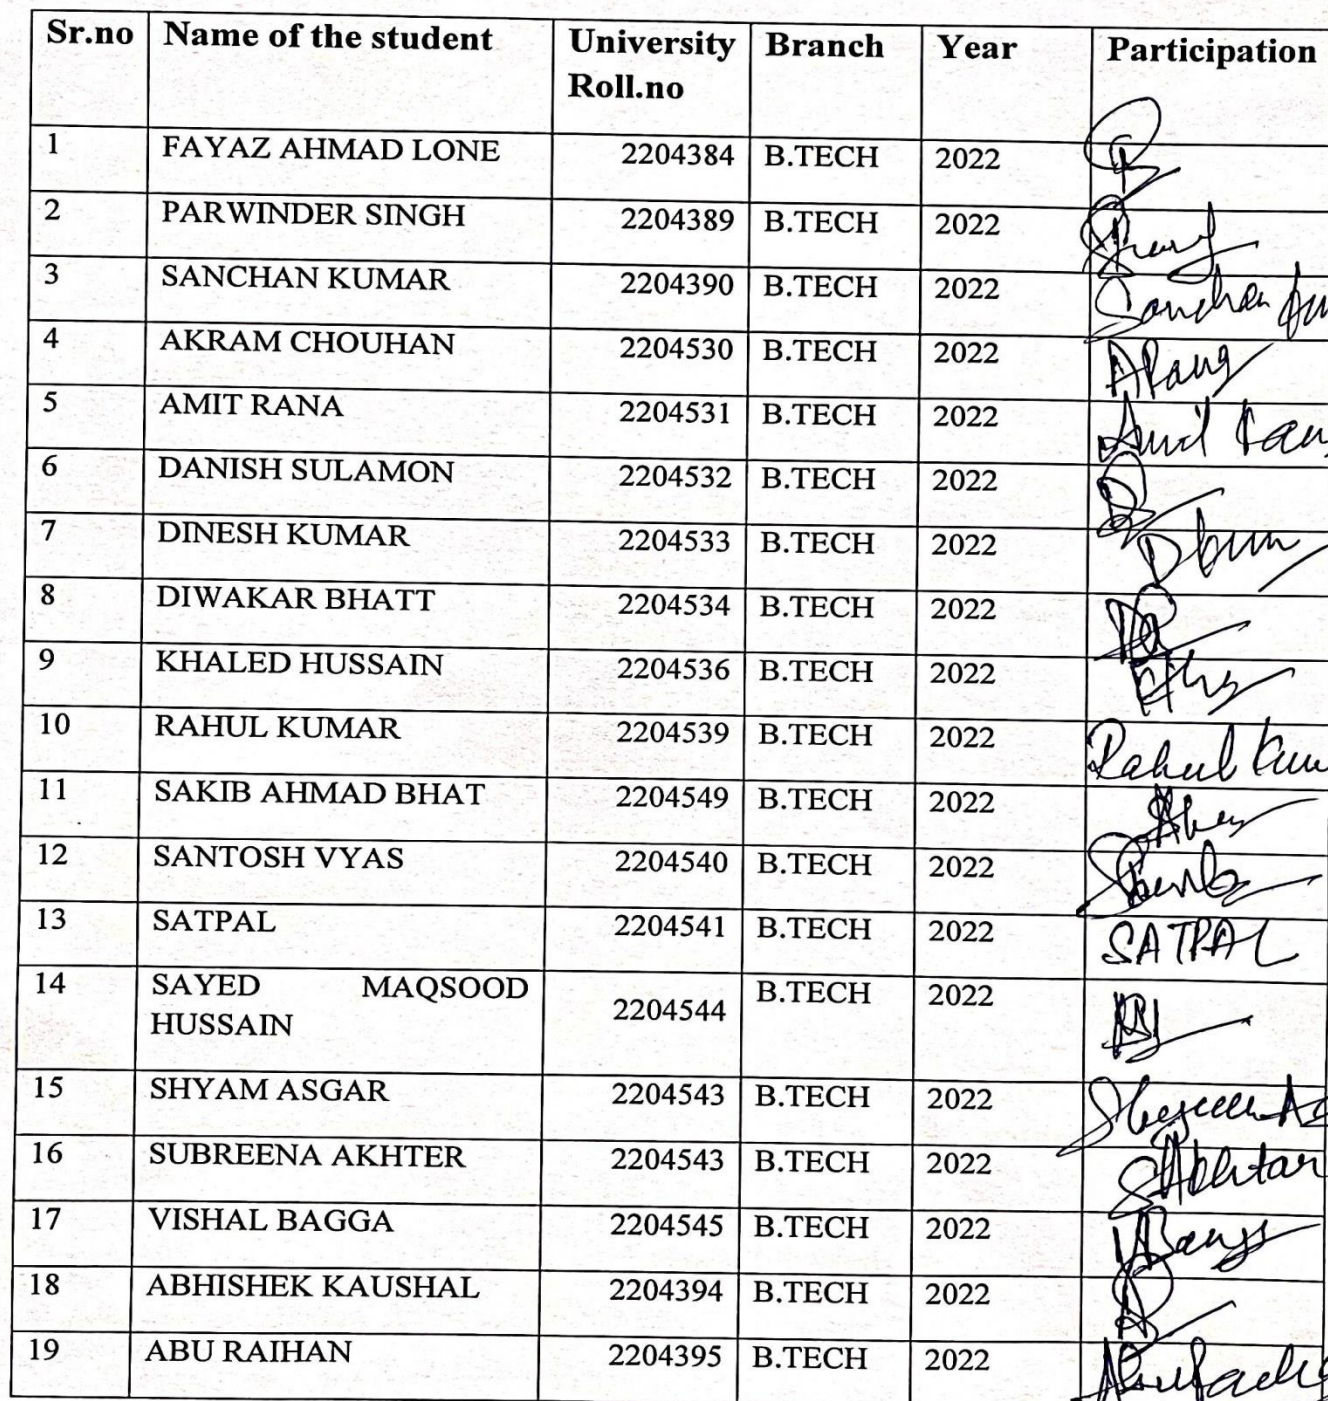 Sr.no Name of the student University Roll.no Branch Year Participation
1 FAYAZ AHMAD LONE 2204384 B.TECH 2022
2 PARWINDER SINGH 2204389 B.TECH 2022
3 SANCHAN KUMAR 2204390 B.TECH 2022 Sanchan
4 AKRAM CHOUHAN 2204530 B.TECH 2022
5 AMIT RANA 2204531 B.TECH 2022
6 DANISH SULAMON 2204532 B.TECH 2022
7 DINESH KUMAR 2204533 B.TECH 2022
8 DIWAKAR BHATT 2204534 B.TECH 2022
9 KHALED HUSSAIN 2204536 B.TECH 2022
10 RAHUL KUMAR 2204539 B.TECH 2022 Rahul
11 SAKIB AHMAD BHAT 2204549 B.TECH 2022
12 SANTOSH VYAS 2204540 B.TECH 2022
13 SATPAL 2204541 B.TECH 2022 SATPAL
14 SAYED MAQSOOD HUSSAIN 2204544 B.TECH 2022
15 SHYAM ASGAR 2204543 B.TECH 2022
16 SUBREENA AKHTER 2204543 B.TECH 2022
17 VISHAL BAGGA 2204545 B.TECH 2022
18 ABHISHEK KAUSHAL 2204394 B.TECH 2022
19 ABU RAIHAN 2204395 B.TECH 2022